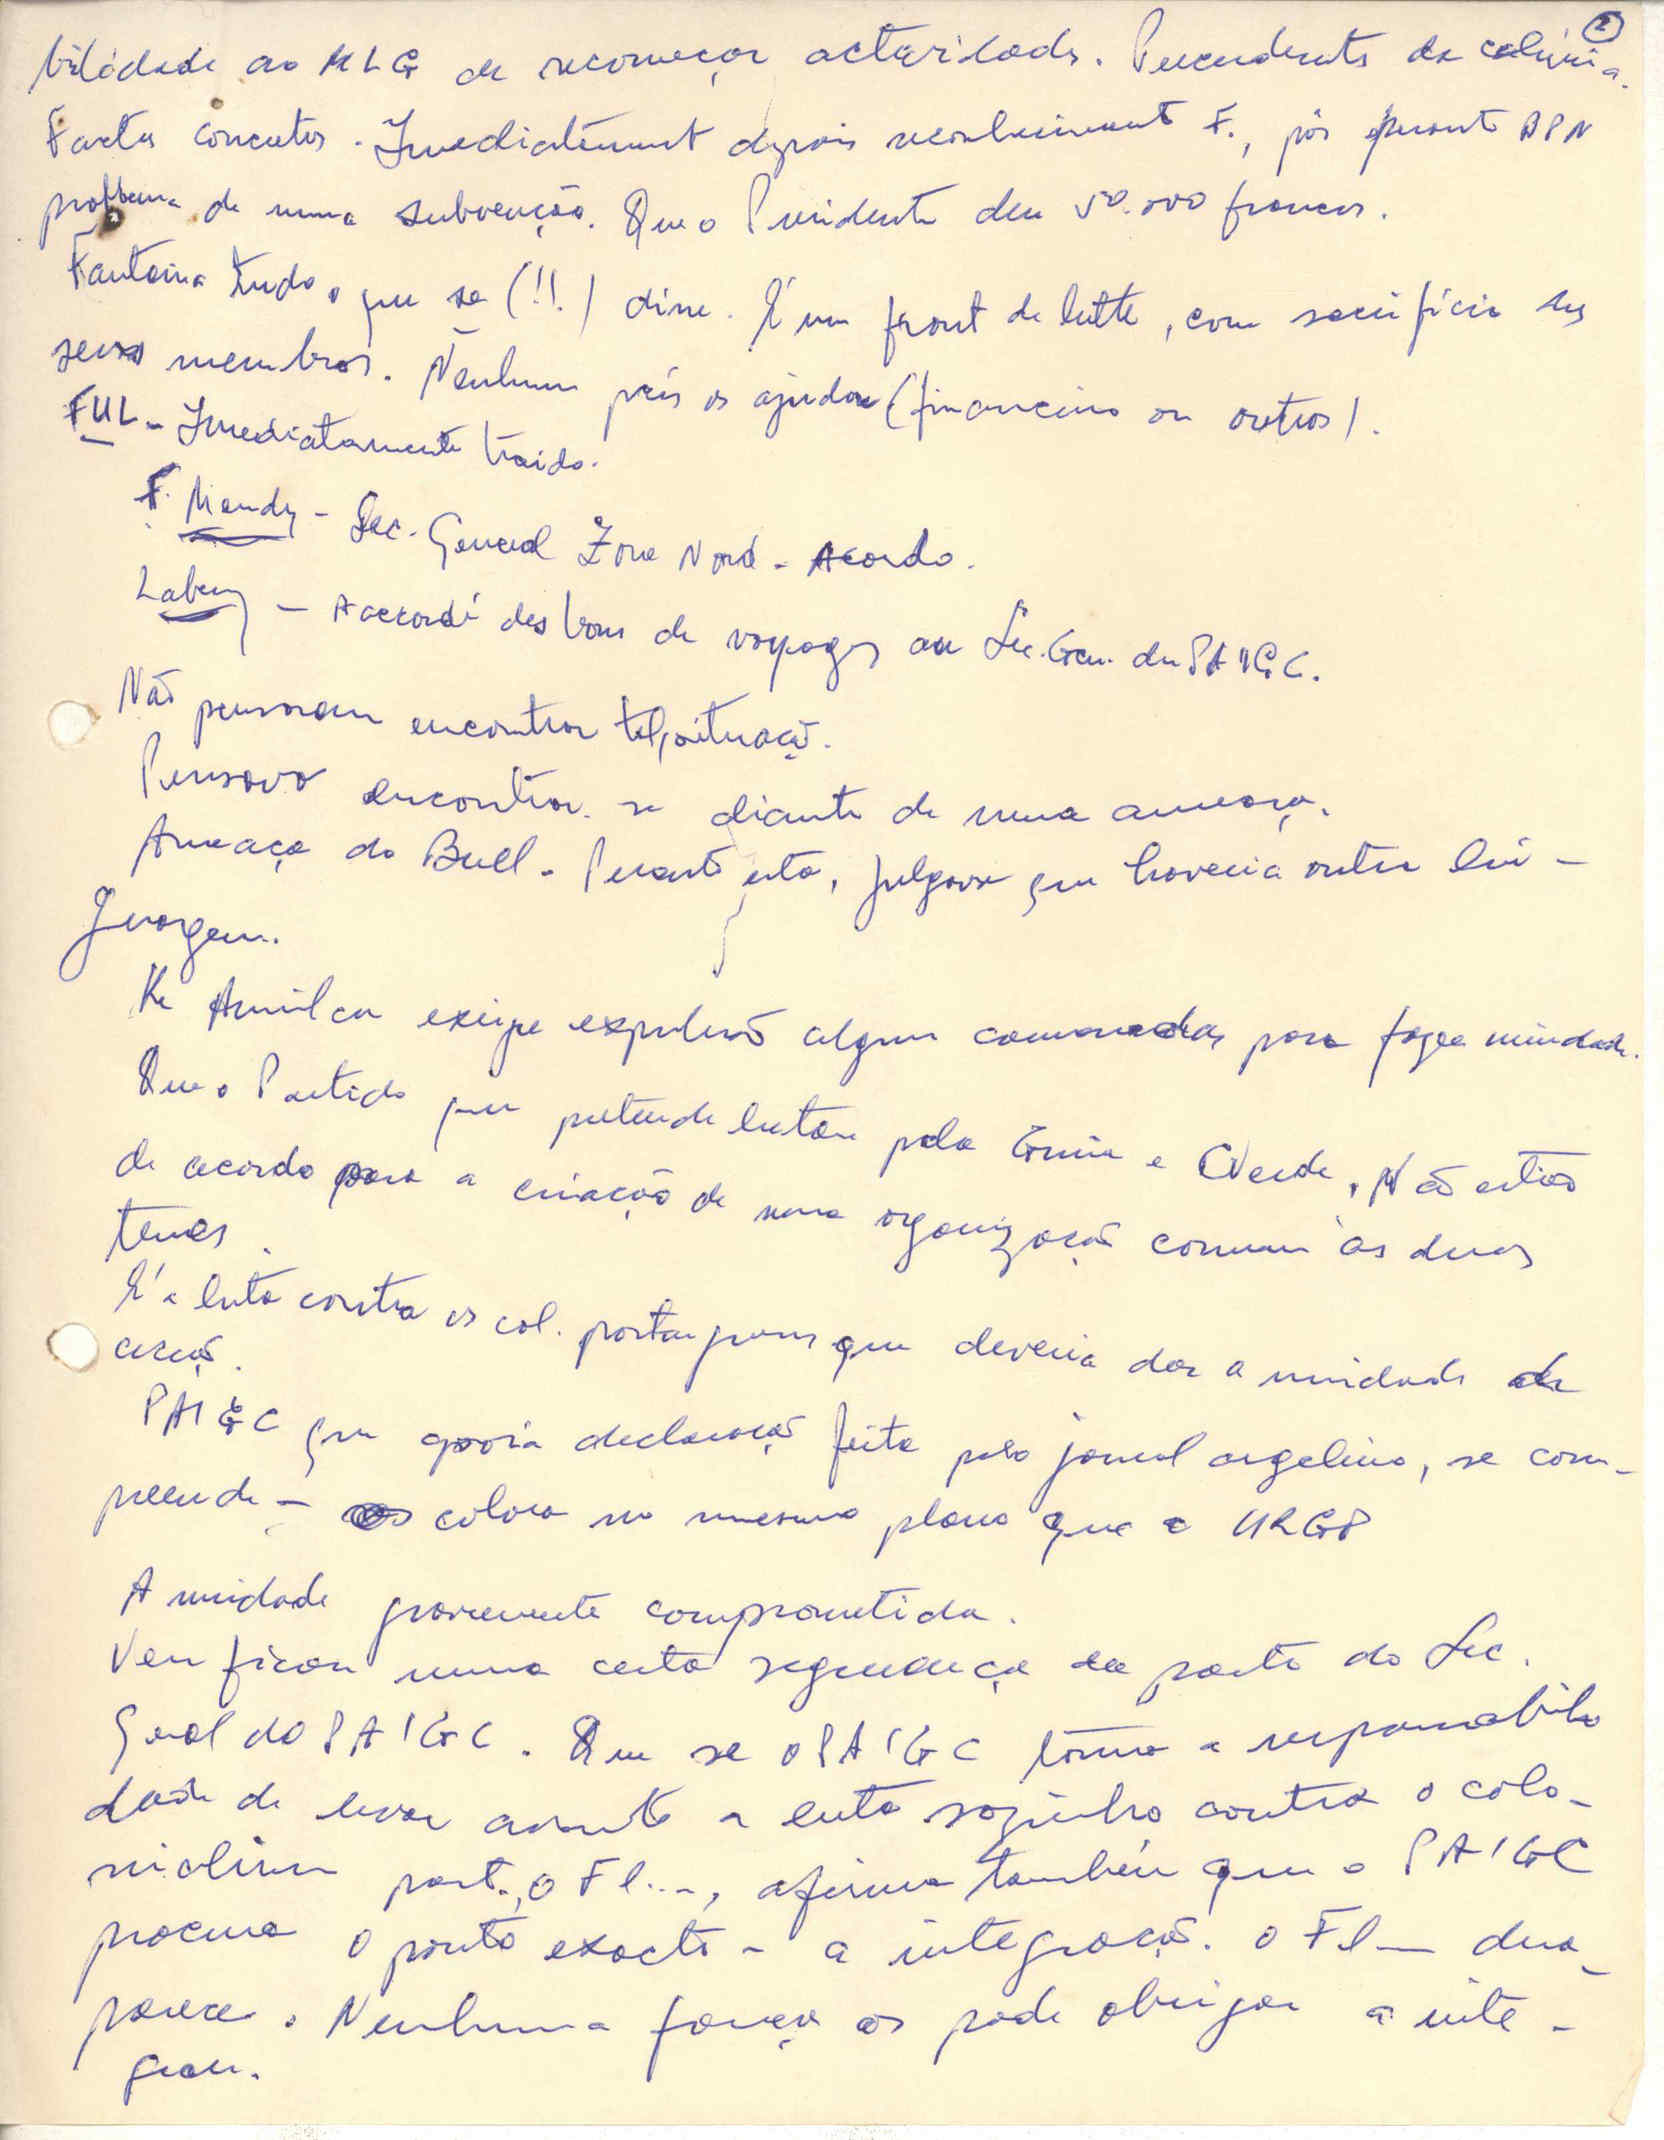 ②
bilidade ao MLG de recomeçar actividade.
Factos concretos. Imediatement depois reconheciment F., pôs perante BPN
problema de uma subvenção. Que o Presidente deu 50.000 francos.
Fantoina tudo o que se (!!.) disse. É um front de lutte, com sacrifício dos
seus membros. Nenhum país os ajudou (financeiro ou outros).
FUL - Imediatamente traido.
F. Mendy - Sec. General Zone Nord - Acordo.
Labery - Accordé des bons de voyages au Sec. Gen. du PAIGC.
Não pensavam encontrar tal situação.
Pensava encontrar-se diante de uma ameaça.
Ameaça do Bull - Perante esta, julgava que haveria outra lin-
guagem.
Ke Amilcar exige expulsão alguns camaradas para fazer unidade.
Que o Partido que pretende lutar pela Guiné e CVerde, Não estão
de acordo para a criação de uma organização comum às duas
terras.
É a luta contra os col. portugueses que deveria dar a unidade de
acção.
PAIGC que apoia declaração feita pelo jornal argelino, se com-
preende - coloca no mesmo plano que a URGP
A unidade gravemente comprometida.
Verificou uma certa segurança da parte do Sec.
Geral do PAIGC. Que se o PAIGC toma a responsabili
dade de levar avante a luta sozinho contra o colo-
nialismo port., o Fl..., afirma também que o PAIGC
procura o ponto exacto - a integração. O Fl— desa-
parece. Nenhuma força os pode obrigar a inte-
grar.